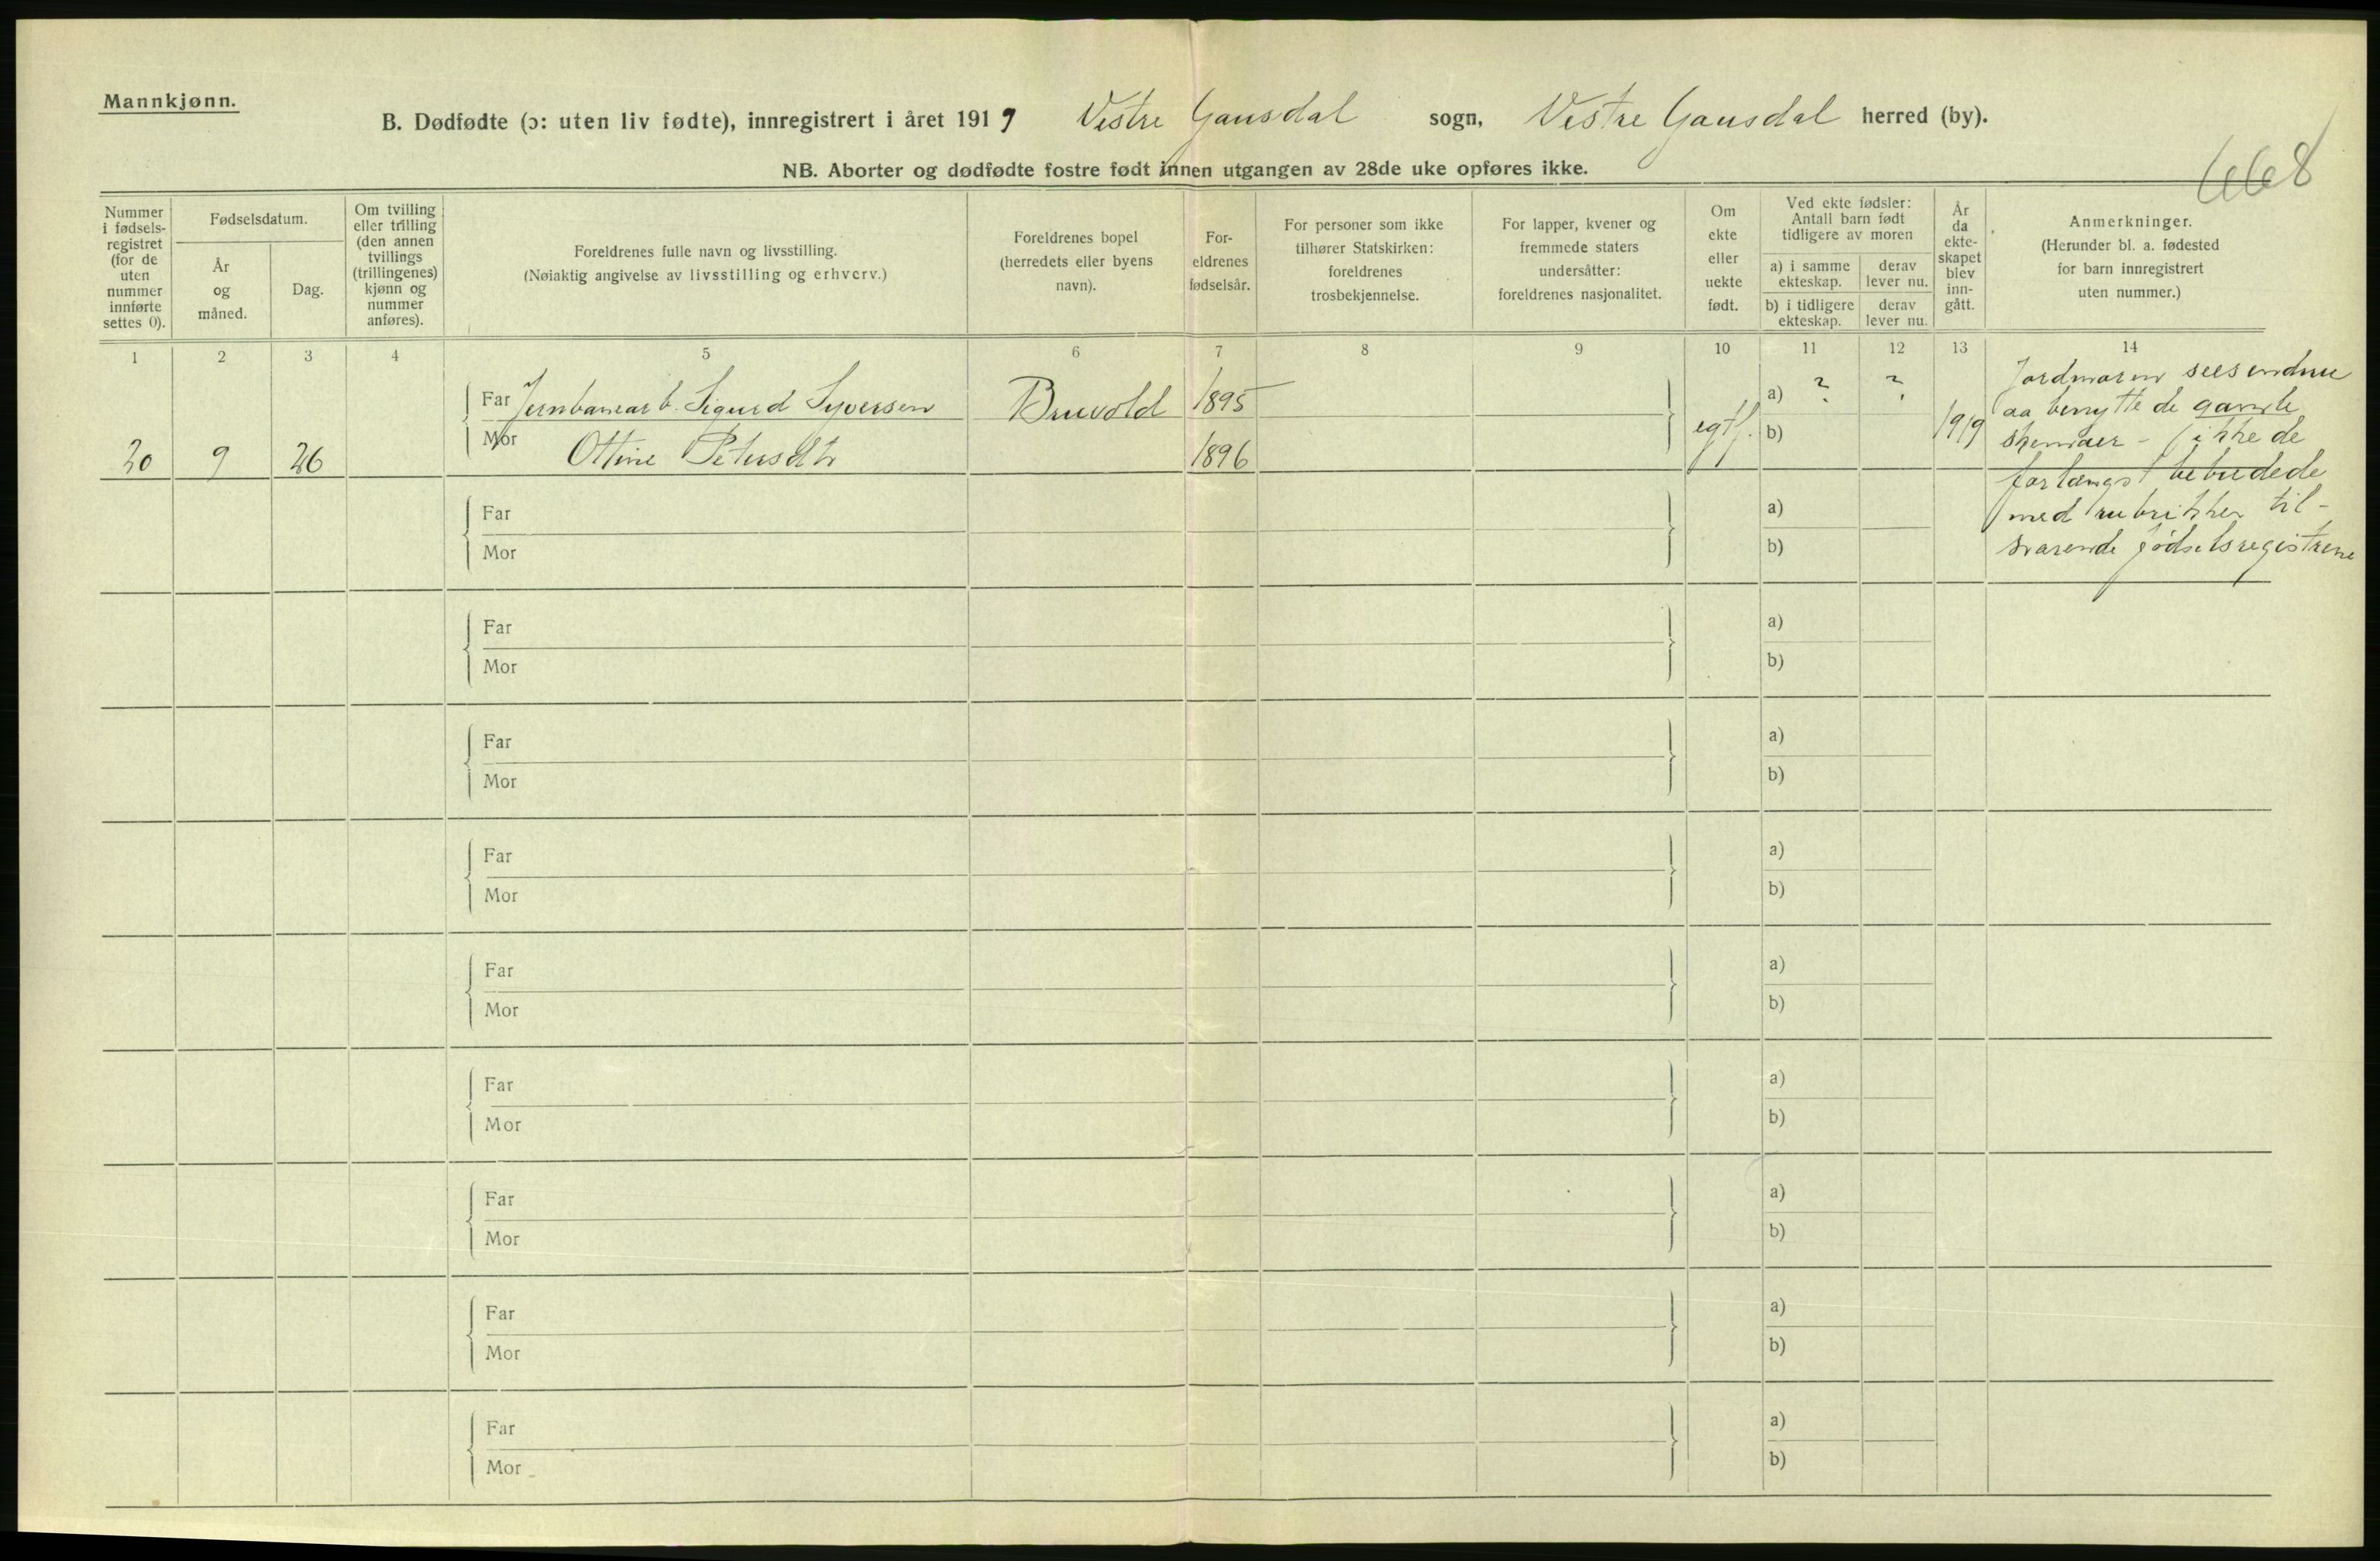 Mannkjønn.
B. Dødfødte (ɔ: uten liv fødte), innregistrert i året 1919 Vestre Gausdal sogn, Vestre Gausdal herred (by).
668
NB. Aborter og dødfødte fostre født innen utgangen av 28de uke opføres ikke.
Nummer
i fødsels-
registret
(for de
uten
nummer
innførte
settes 0).
Fødselsdatum.
År
og
måned.
Dag.
Om tvilling
eller trilling
(den annen
tvillings
(trillingenes)
kjønn og
nummer
anføres).
Foreldrenes fulle navn og livsstilling.
(Nøiaktig angivelse av livsstilling og erhverv.)
Foreldrenes bopel
(herredets eller byens
navn).
For-
eldrenes
fødselsår.
For personer som ikke
tilhører Statskirken:
foreldrenes
trosbekjennelse.
For lapper, kvener og
fremmede staters
undersåtter:
foreldrenes nasjonalitet.
Om
ekte
eller
uekte
født.
Ved ekte fødsler:
Antall barn født
tidligere av moren
a) i samme
ekteskap.
derav
lever nu.
b) i tidligere
ekteskap.
derav
lever nu.
År
da
ekte-
skapet
blev
inn-
gått.
Anmerkninger.
(Herunder bl. a. fødested
for barn innregistrert
uten nummer.)
1 2 3 4 5 6 7 8 9 10 11 12 13 14
Far Jernbanearb. Sigurd Syversen Bruvold 1895 a) ? ?
20 9 26 Mor Ottine Petersdtr 1896 egtf. b) 1919
Jordmoren sees endnu
aa benytte de gamle
skemaer - (ikke de
forlængst bebudede
med rubrikker til-
svarende fødselsregistrene
Far a)
Mor b)
Far a)
Mor b)
Far a)
Mor b)
Far a)
Mor b)
Far a)
Mor b)
Far a)
Mor b)
Far a)
Mor b)
Far a)
Mor b)
Far a)
Mor b)